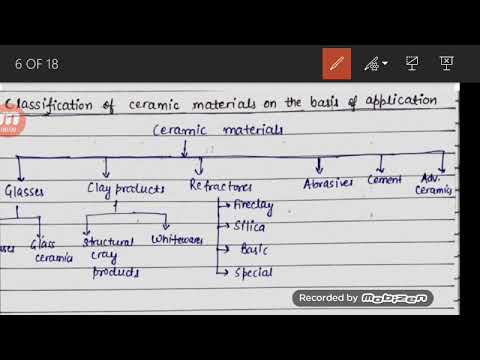 6 OF 18
Classification of ceramic materials on the basis of application
Ceramic materials
Glasses Clay products Refractores Abrasives Cement Adv. Ceramics
Glass ceramia
Structural cray products
Whitewares
Fireclay
Silica
Basic
Special
Recorded by Mobizen